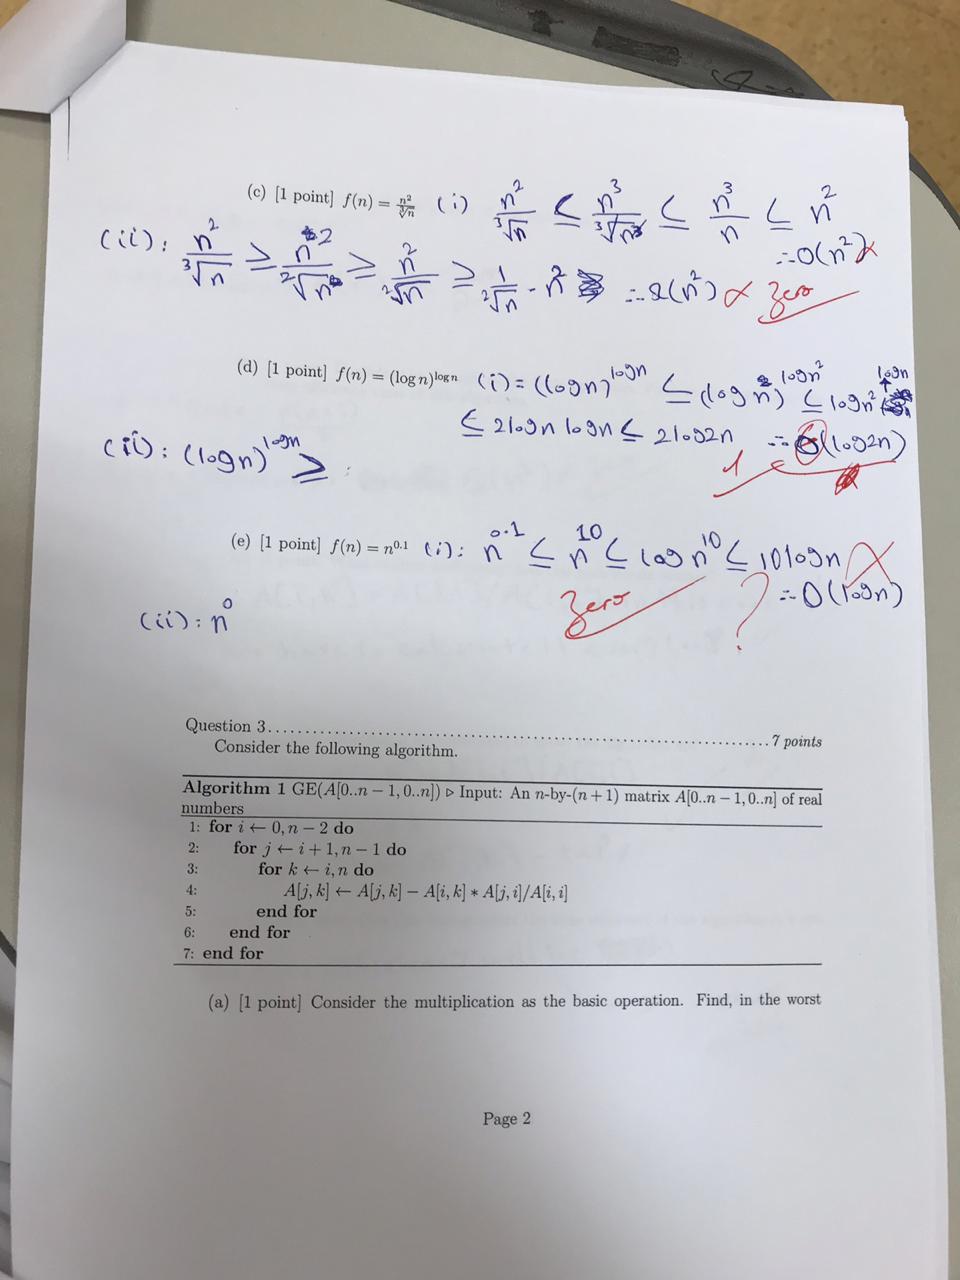 (c) [1 point] f(n) = n²/∛n (i) n²/∛n ≤ n³/∛n³ ≤ n³/n ≤ n²
∴O(n²)
(ii): n²/∛n ≥ n²/²√n ≥ n²/²√n ≥ 1/²√n · n² ∴Ω(n²) Zero
(d) [1 point] f(n) = (log n)^{log n} (i) = (logn)^{logn} ≤ (logn)^{logn²} ≤ logn²^{logn}
≤ 2logn logn ≤ 2log2n ∴O(log2n)
(ii): (logn)^{logn} ≥
1
(e) [1 point] f(n) = n^{0.1} (i): n^{0.1} ≤ n^{10} ≤ logn^{10} ≤ 10logn
∴O(logn)
Zero ?
(ii): n⁰
Question 3 . . . . . . . . . . . . . . . . . . . . . . . . . . . . . . . . . . . . . . . . 7 points
Consider the following algorithm.
Algorithm 1 GE(A[0..n − 1, 0..n]) ▷ Input: An n-by-(n + 1) matrix A[0..n − 1, 0..n] of real
numbers
1: for i ← 0, n − 2 do
2: for j ← i + 1, n − 1 do
3: for k ← i, n do
4: A[j, k] ← A[j, k] − A[i, k] * A[j, i]/A[i, i]
5: end for
6: end for
7: end for
(a) [1 point] Consider the multiplication as the basic operation. Find, in the worst
Page 2